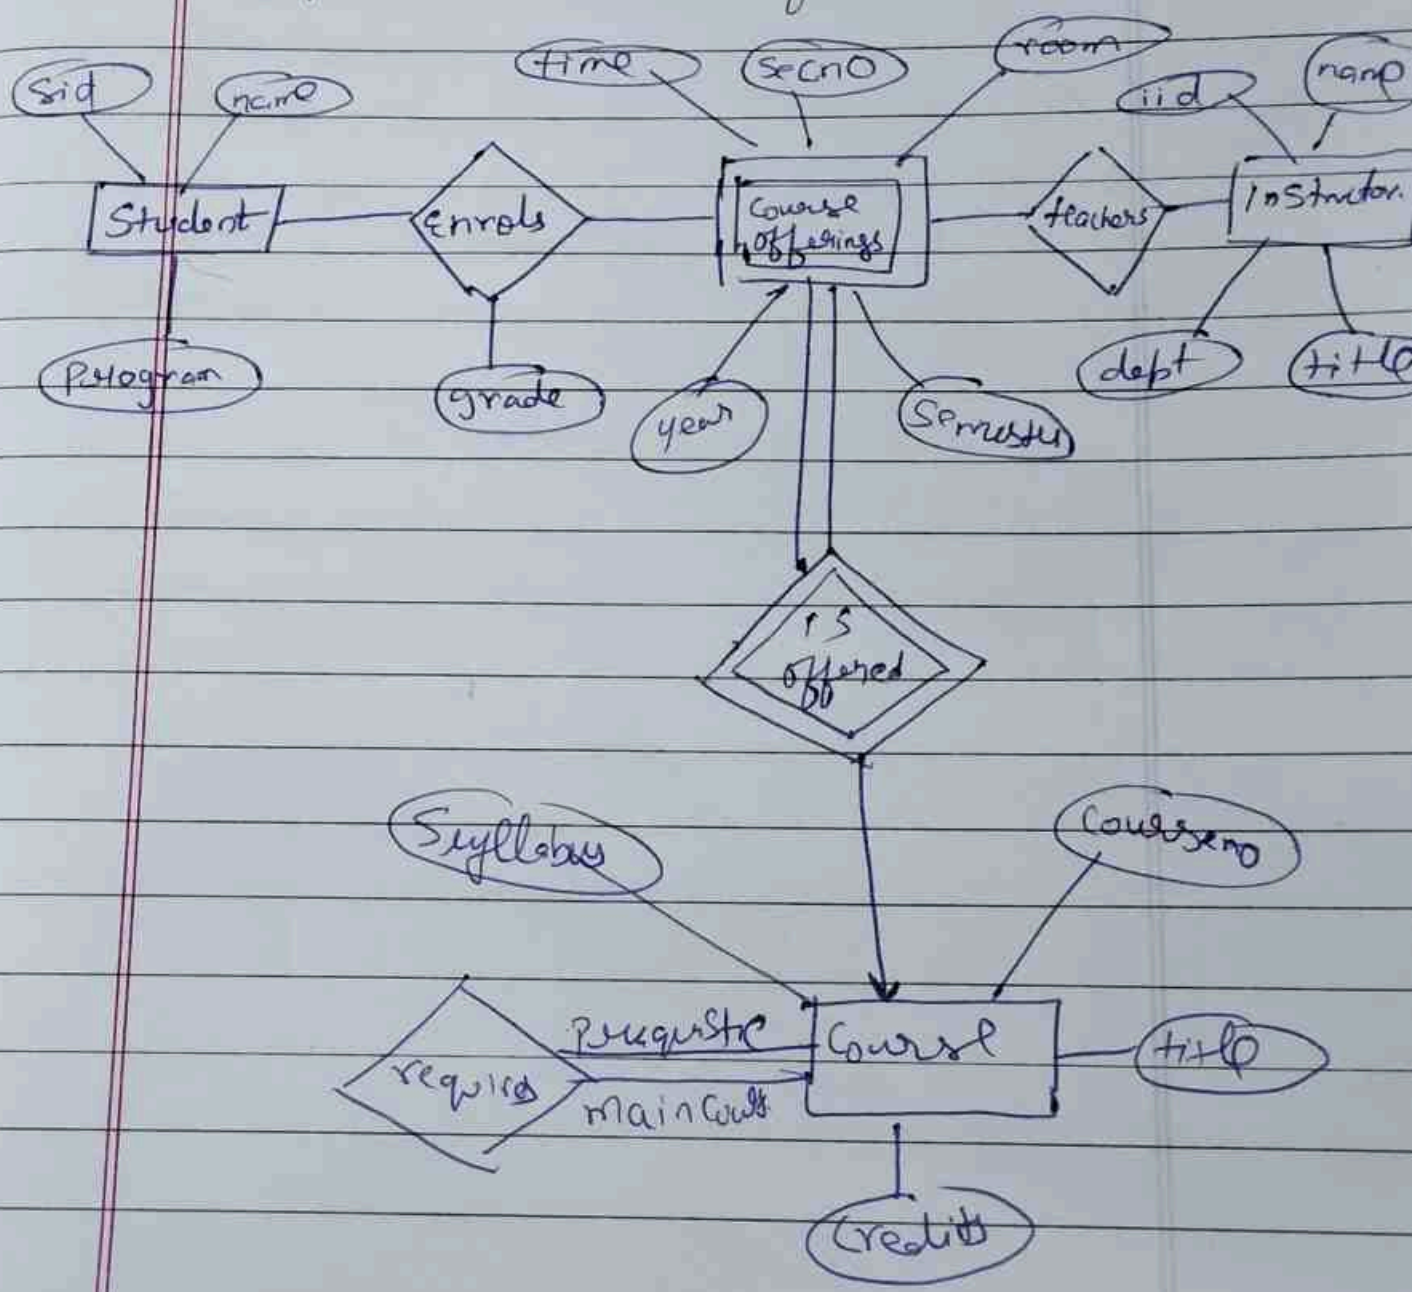 Sid
name
time
secno
room
iid
name
Student
Enrols
Course
offerings
teachers
Instructor
program
grade
year
Semester
dept
title
is
offered
Syllabus
Courseno
requires
maincours
Course
title
Credits